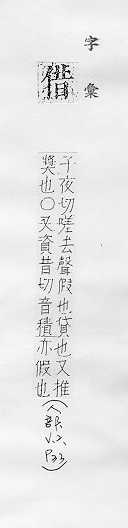 字彙
借
子夜切嗟去聲假也貸也又推
奬也○又資昔切音積亦假也
(人部